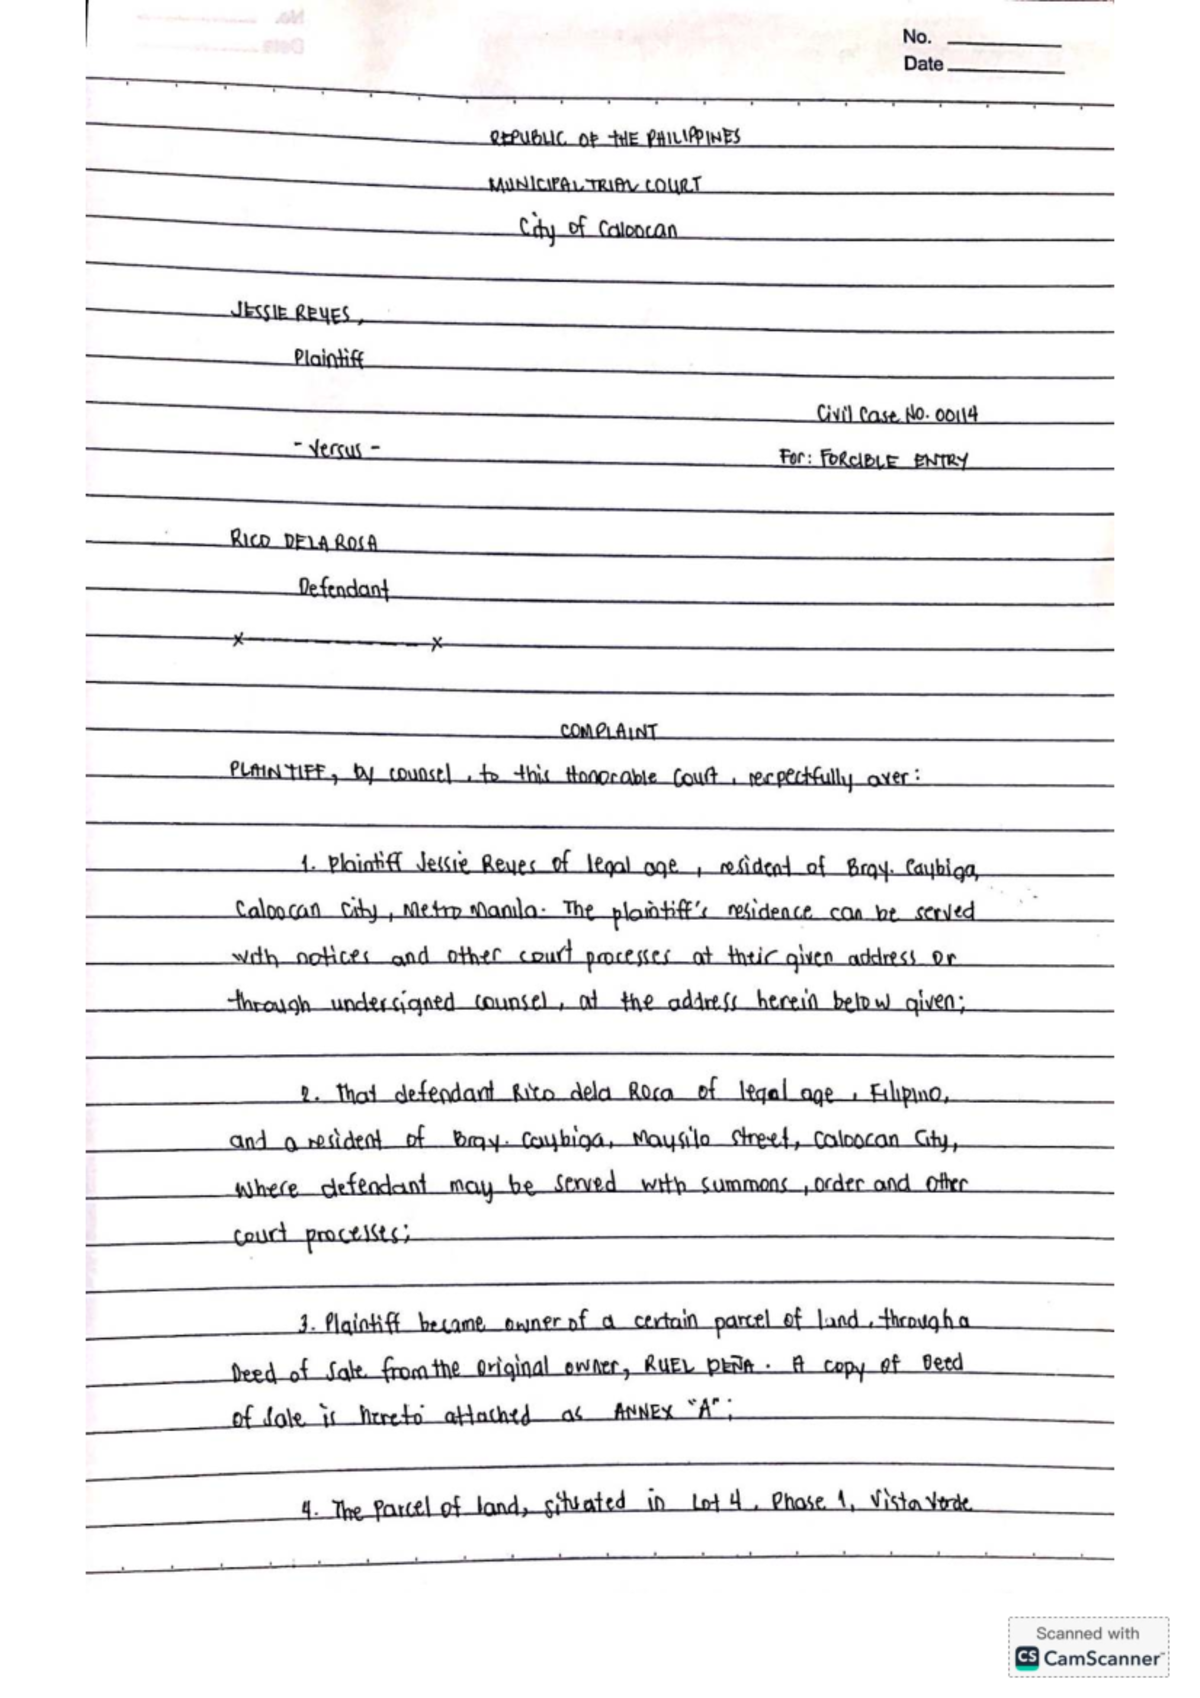 No.
Date
REPUBLIC OF THE PHILIPPINES
MUNICIPAL TRIAL COURT
City of Caloocan
JESSIE REYES,
Plaintiff
Civil Case No. 00114
- Versus -
For: FORCIBLE ENTRY
RICO DELA ROSA
Defendant
x————————x
COMPLAINT
PLAINTIFF, by counsel, to this Honorable Court, respectfully aver:
1. Plaintiff Jessie Reyes of legal age, resident of Brgy. Caybiga,
Caloocan City, Metro Manila. The plaintiff's residence can be served
with notices and other court processes at their given address or
through undersigned counsel, at the address herein below given;
2. That defendant Rico dela Rosa of legal age, Filipino,
and a resident of Brgy. Caybiga, Maysilo Street, Caloocan City,
Where defendant may be served with summons, order and other
court processes;
3. Plaintiff became owner of a certain parcel of land, through a
Deed of Sale from the original owner, RUEL PEÑA. A copy of Deed
of Sale is hereto attached as ANNEX "A";
4. The Parcel of land, situated in Lot 4, Phase 1, Vista Verde
Scanned with
CS CamScanner